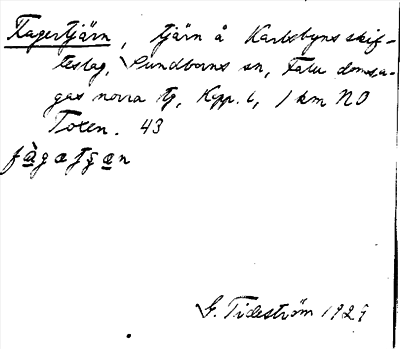 Fagertjärn, tjärn å Karlsbyns skif-
teslag, Sundborns sn, Falu domsa-
gas norra tg, Kpp. 6, 1 km NO
Toxen. 43
G. Tideström 1929